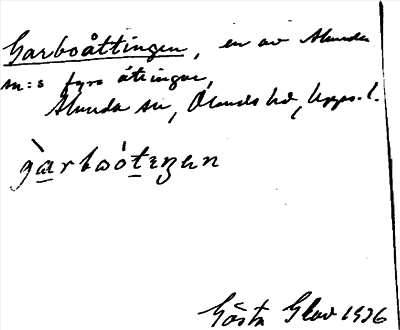 Garboåttingen, en av Alunda
sn:s fyra åttingar,
Alunda sn, Olands hd, Upps. l.
gàrbωóteŋen
Gösta Glad 1936